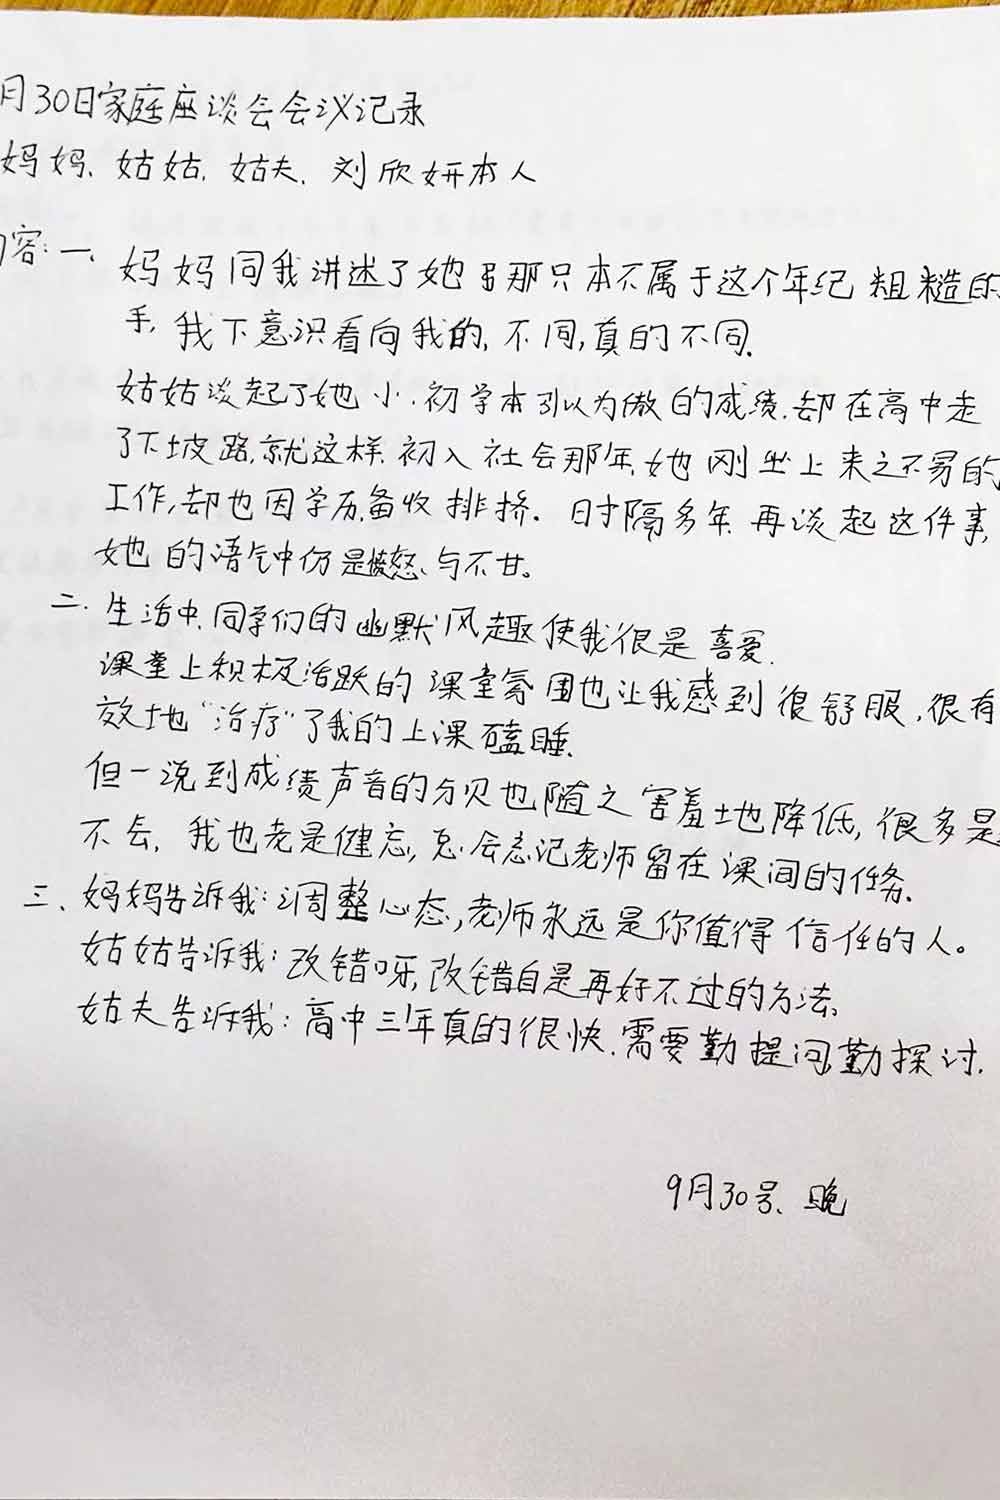 月30日家庭座谈会会议记录
妈妈、姑姑、姑夫、刘欣妍本人
容:一、妈妈同我讲述了她那只本不属于这个年纪粗糙的
手,我下意识看向我的,不同,真的不同。
姑姑谈起了她小、初学本引以为傲的成绩,却在高中走
了下坡路,就这样,初入社会那年,她刚坐上来之不易的
工作,却也因学历备收排挤。时隔多年,再谈起这件事,
她的语气中仍是愤怒、与不甘。
二、生活中,同学们的幽默风趣使我很是喜爱。
课堂上积极活跃的课堂氛围也让我感到很舒服,很有
效地"治疗"了我的上课瞌睡。
但一说到成绩声音的分贝也随之害羞地降低,很多是
不会,我也老是健忘,总会忘记老师留在课间的任务。
三、妈妈告诉我:调整心态,老师永远是你值得信任的人。
姑姑告诉我:改错呀,改错自是再好不过的方法。
姑夫告诉我:高中三年真的很快,需要勤提问,勤探讨。
9月30号、晚